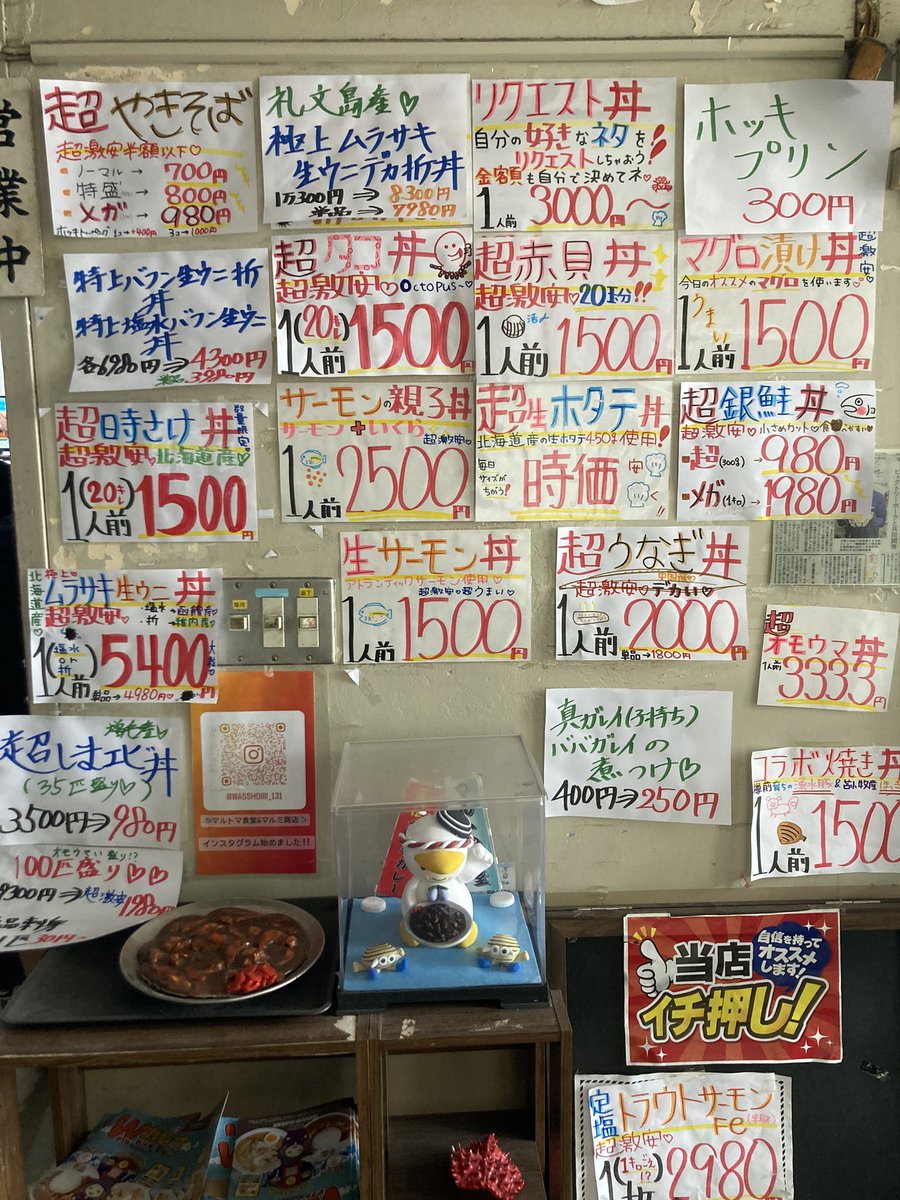 営業中
超やきそば
超激安半額以下♡
・ノーマル→ 700円
・特盛→ 800円
・メガ→ 980円
ホッキトッピング 1コ→+400円 3コ→1000円
礼文島産♡
極上ムラサキ
生ウニデカ折丼
1万300円⇒8300円
単品⇒7980円
リクエスト丼
自分の好きなネタを!
リクエストしちゃおう!
金額も自分で決めてネ
1人前 3000円〜
ホッキ
プリン
300円
特上バフン生ウニ折
丼
特上塩水バフン生ウニ
丼
各6980円⇒4300円
単品⇒3980円
超タコ丼
超激安♡Octopus〜♡
1(20cm)人前 1500円
超赤貝丼
超激安♡20玉分!!
1人前 活〆 1500円
マグロ漬け丼 超激安♡
今日のオススメのマグロを使います♡
1人前 うまい 1500円
超時さけ丼 数量限定
超激安♡北海道産♡
1(20cm)人前 1500円
サーモンの親子丼
サーモン+いくら
超激安♡
1人前 2500円
超生ホタテ丼
北海道産の生ホタテ450g使用!
毎日サイズがちがう!
時価
安
超銀鮭丼
超激安♡小さめカット♡食べやすい♡
・超(300g)→980円
・メガ(1キロ)→1980円
北海道産♡
極上ムラサキ生ウニ丼
超激安♡
塩水→函館産♡
折→稚内産♡
1(塩水or折)人前 5400円
単品→4980円
生サーモン丼
アトランティックサーモン使用♡
超激安♡超うまい♡
1人前 1500円
超うなぎ丼
中国産♡
超激安♡デカい♡
1人前 2000円
単品→1800円
超
オモウマ丼
1人前 3333円
増毛産♡
超しまエビ丼
(35匹盛り♡)
3500円⇒980円
オモウマい盛り!?
100匹盛り♡♡
9300円⇒超激安1980円
@WASSHOIIII_131
マルトマ食堂&マルミ商店
インスタグラム始めました!!
真ガレイ(子持ち)
ババガレイの
煮つけ♡
400円⇒250円
コラボ焼き丼
1人前 1500
カレー
当店
自信を持ってオススメします!
イチ押し!
定塩トラウトサーモン
Fe(半身)
超激安♡
1(1キロごえ!?) 2980